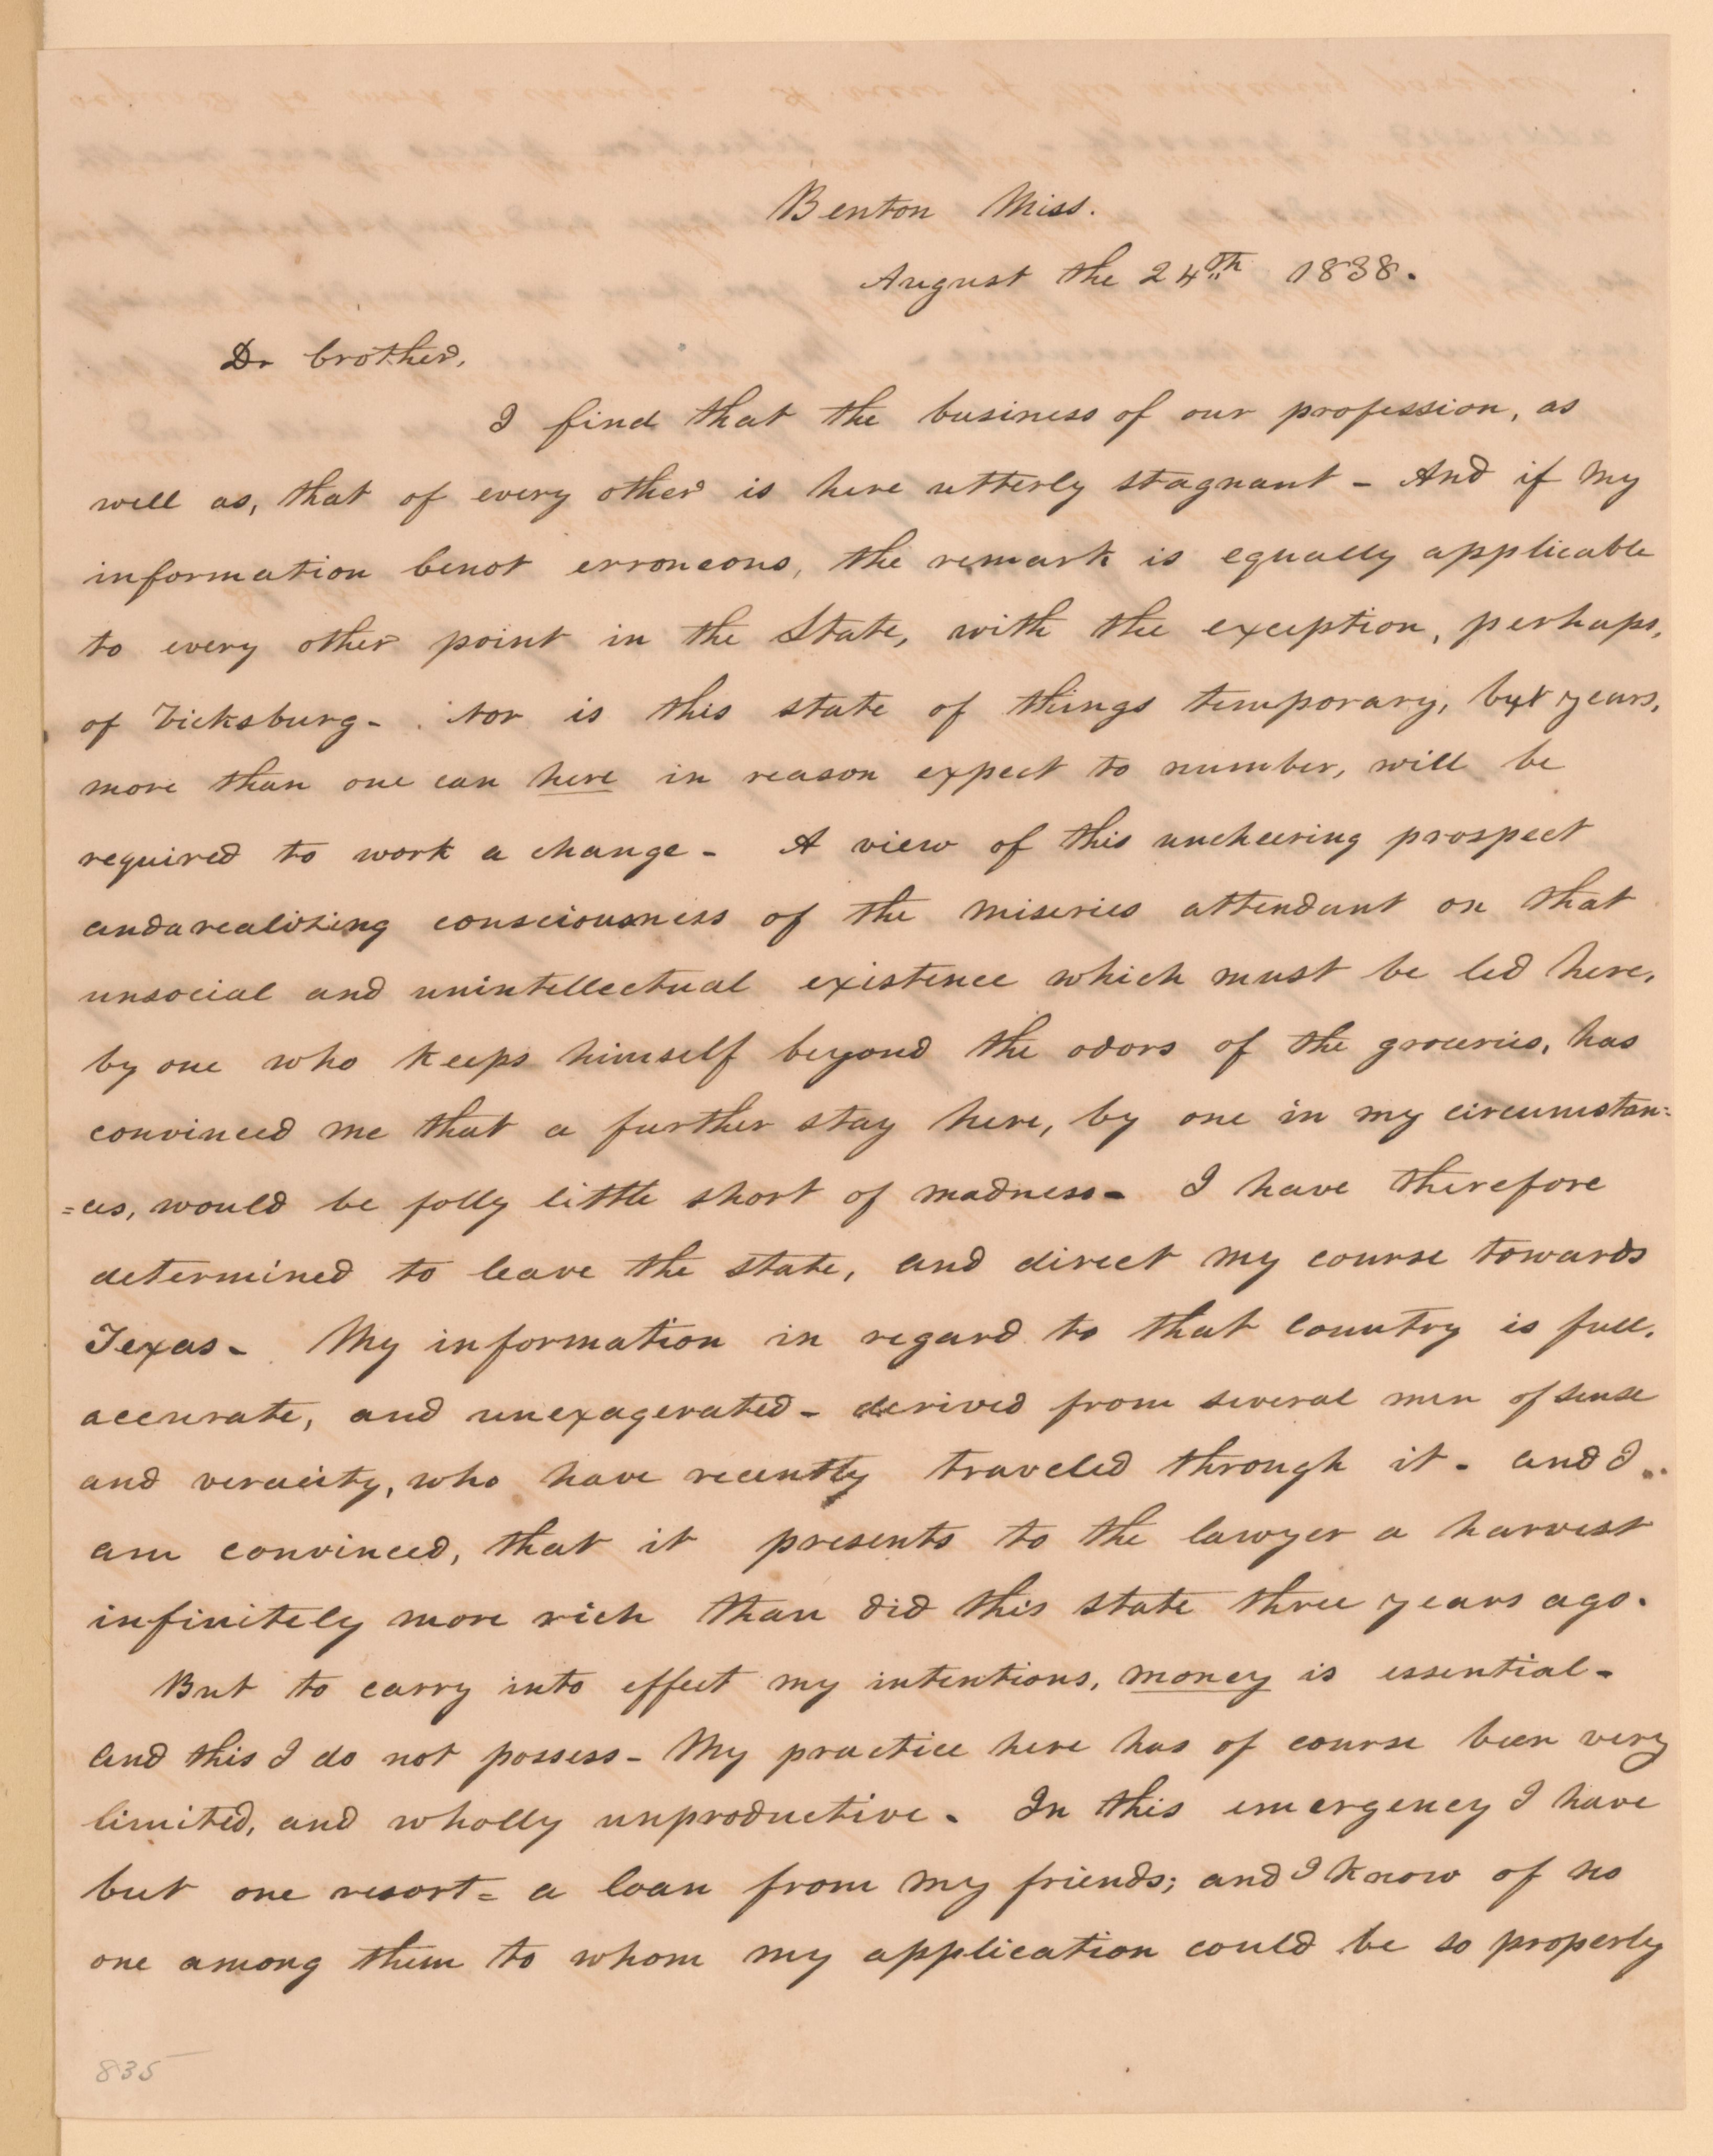 Benton Miss.
August the 24th 1838.
Dr brother,
I find that the business of our profession, as
well as, that of every other is here utterly stagnant - And if my
information benot erroneous, the remark is equally applicable
to every other point in the State, with the exception, perhaps,
of Vicksburg - Nor is this state of things temporary, but years,
more than one can here in reason expect to number, will be
required to work a change - A view of this uncheering prospect
and a realizing consciousness of the miseries attendant on that
unsocial and unintellectual existence which must be led here,
by one who keeps himself beyond the odors of the groceries, has
convinced me that a further stay here, by one in my circumstan=
=ces, would be folly little short of madness - I have therefore
determined to leave the state, and direct my course towards
Texas - My information in regard to that country is full,
accurate, and unexagerated - derived from several men of sense
and veracity, who have recently traveled through it - and I
am convinced, that it presents to the lawyer a harvest
infinitely more rich than did this state three years ago.
But to carry into effect my intentions, money is essential -
and this I do not possess - My practice here has of course been very
limited, and wholly unproductive. In this emergency I have
but one resort = a loan from my friends; and I know of no
one among them to whom my application could be so properly
835